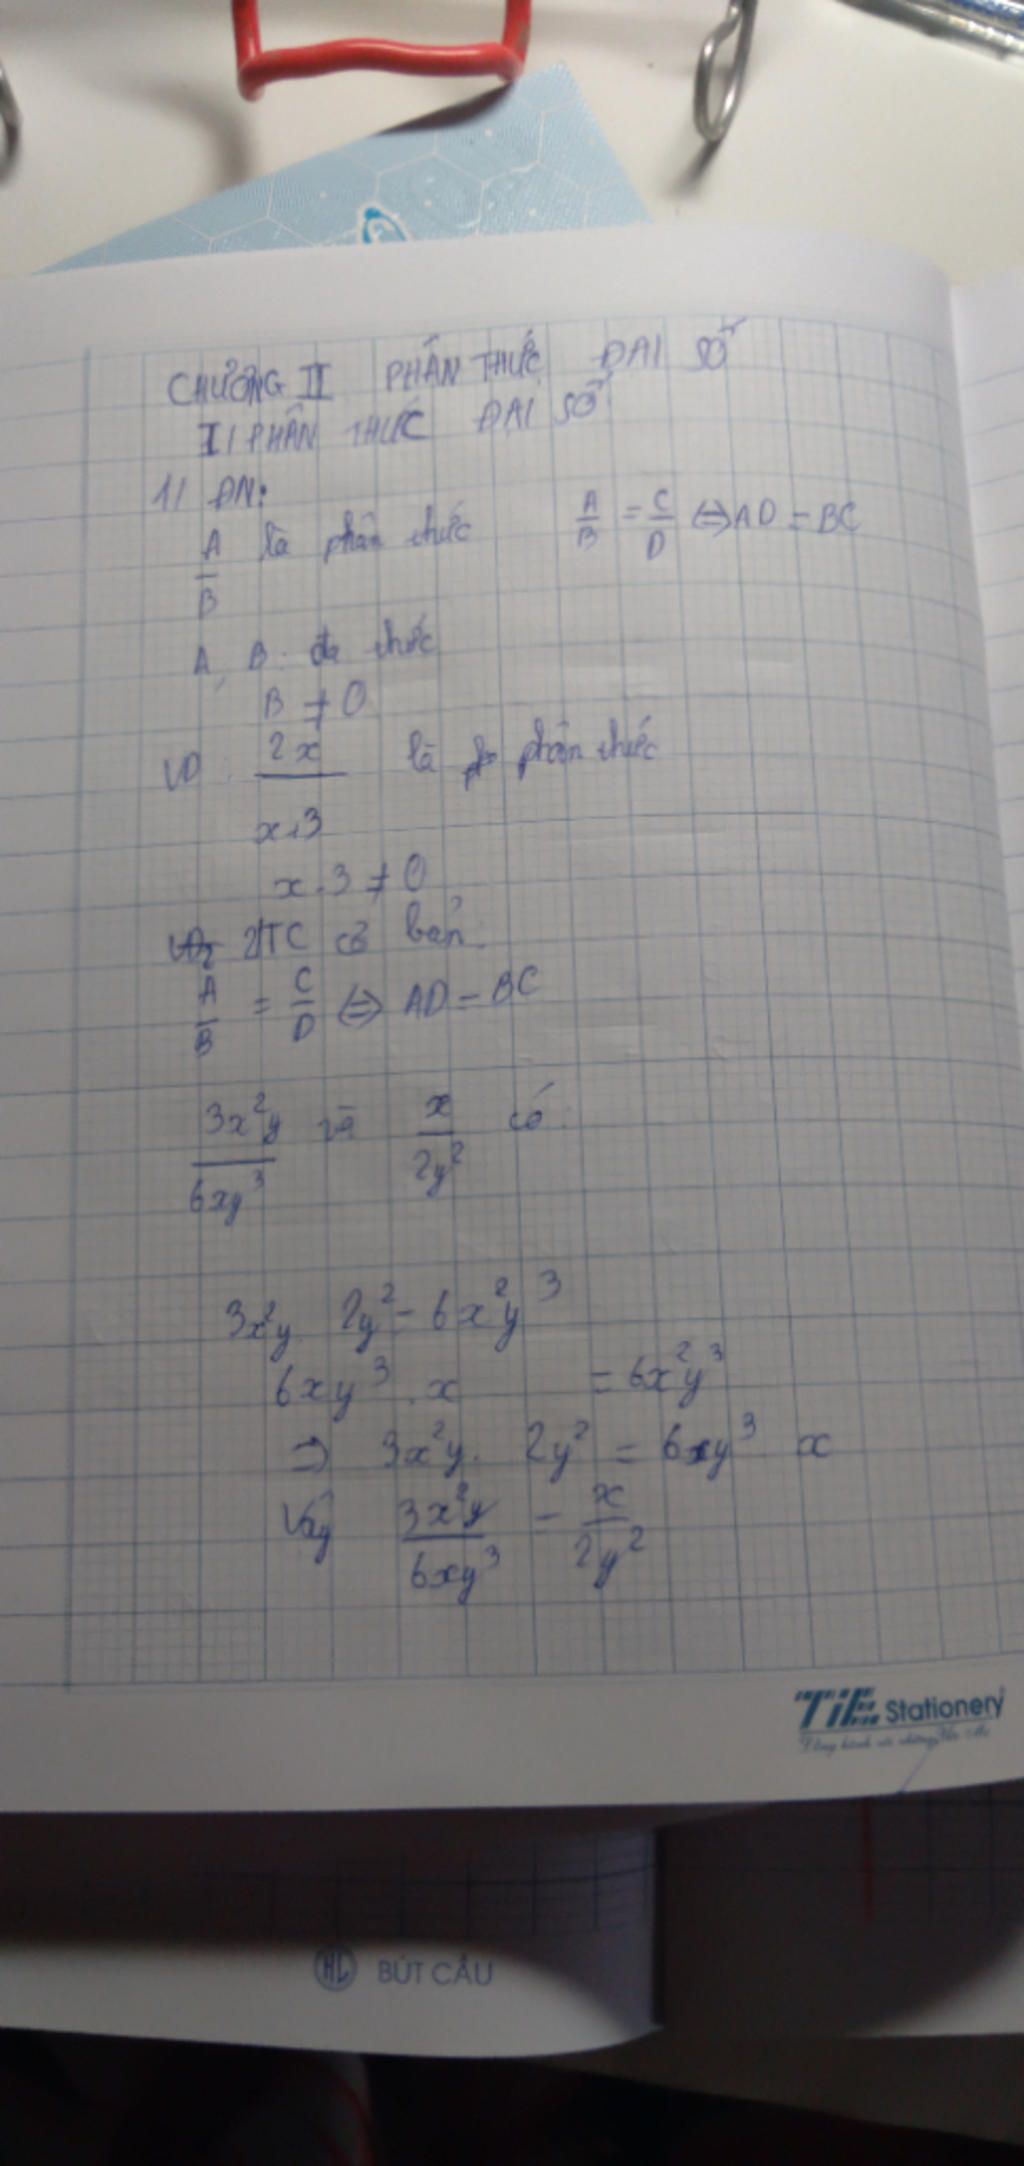 CHƯƠNG II PHÂN THỨC ĐẠI SỐ
I/ PHÂN THỨC ĐẠI SỐ
1/ ĐN:
A/B là phân thức A/B = C/D ⇔ AD = BC
A, B: đa thức
B ≠ 0
VD: 2x/(x-3) là phân thức
x-3 ≠ 0
2/ TC cơ bản:
A/B = C/D ⇔ AD = BC
3x²y/6xy³ và x/2y² có:
3x²y. 2y² = 6x²y³
6xy³ . x = 6x²y³
⇒ 3x²y. 2y² = 6xy³ x
Vậy 3x²y/6xy³ = x/2y²
TiE Stationery
HL BÚT CÂU